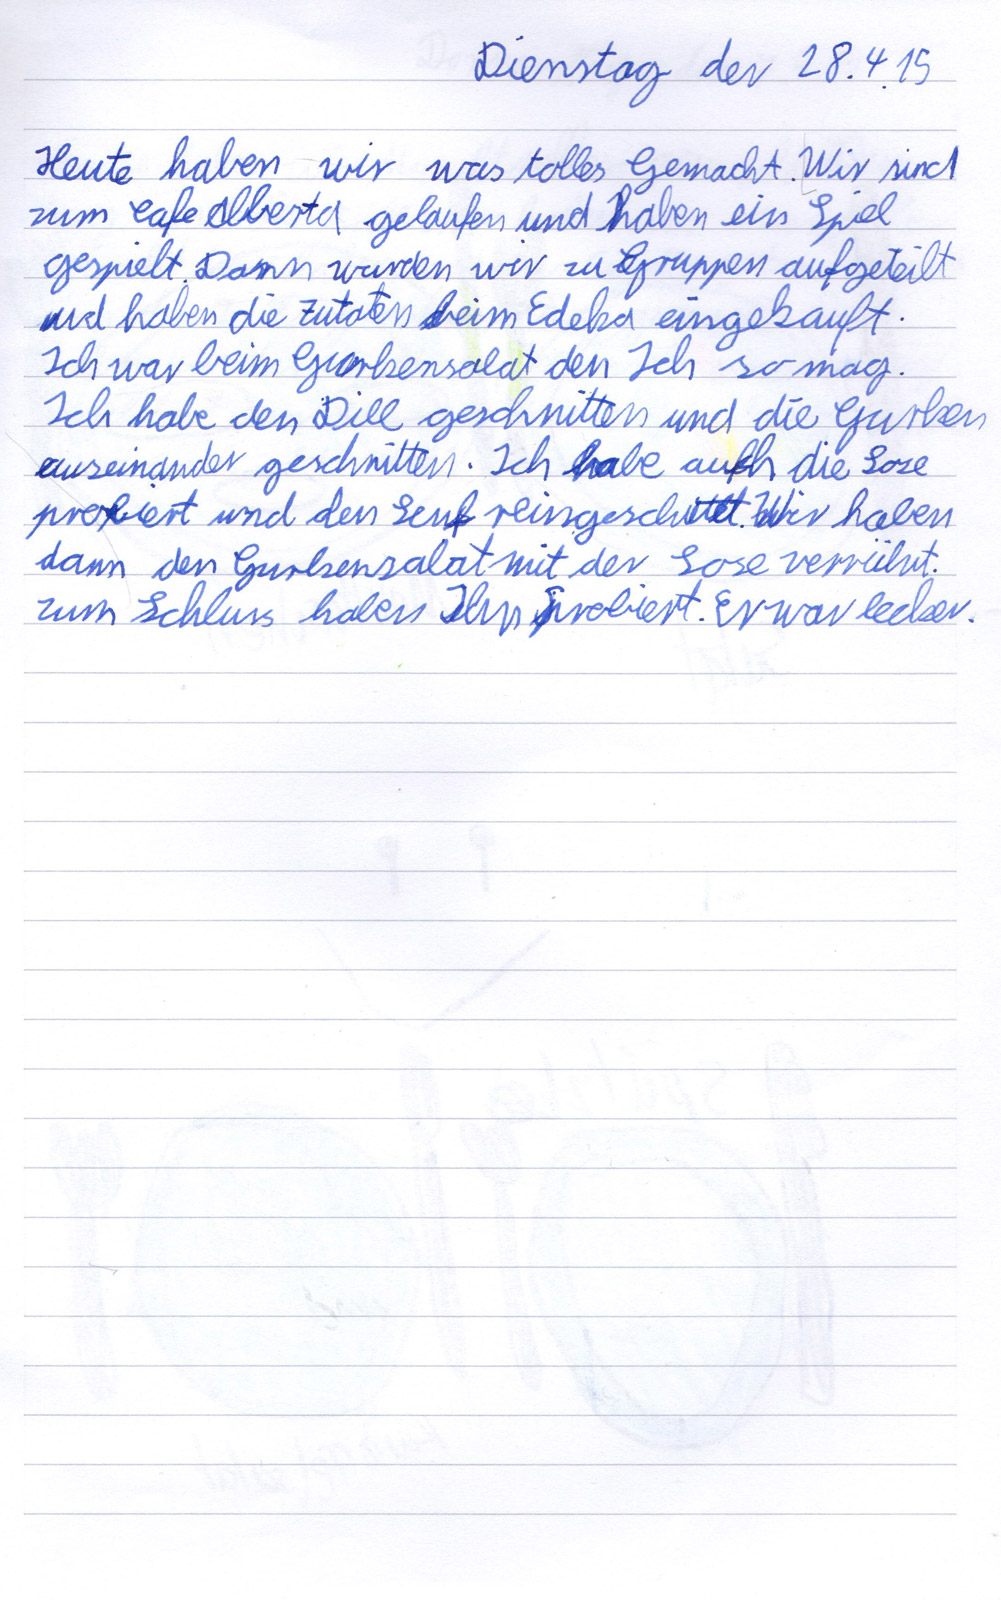 Dienstag der 28.4.15
Heute haben wir was tolles Gemacht. Wir sind
zum Cafe Alberta gelaufen und haben ein Spiel
gespielt. Dann wurden wir zu Gruppen aufgeteilt
und haben die Zutaten beim Edeka eingekauft.
Ich war beim Gurkensalat den Ich so mag.
Ich habe den Dill geschnitten und die Gurken
auseinander geschnitten. Ich habe auch die Sose
probiert und den Senf reingeschüttet. Wir haben
dann den Gurkensalat mit der Sose verrührt.
zum Schluss haben Ihn probiert. Er war lecker.